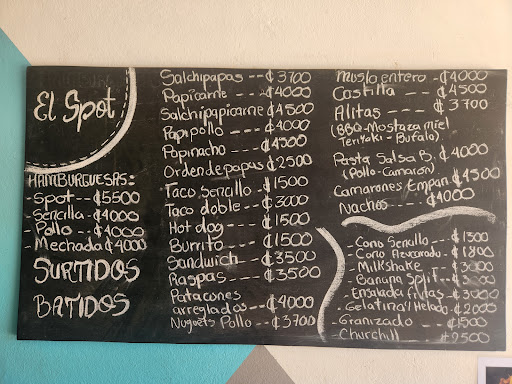 El Spot
HAMBURGUESAS:
- Spot -- ₡5500
- Sencilla -₡4000
- Pollo -- ₡4000
- Mechada ₡4000
SURTIDOS
BATIDOS
Salchipapas -- ₡3700
Papicarne --- ₡4000
Salchipapicarne ₡4500
Papipollo --- ₡4000
Papinacho --- ₡4300
Orden de papas ₡2500
Taco Sencillo - ₡1500
Taco doble -- ₡3000
Hot dog --- ₡1500
Burrito --- ₡1500
Sandwich -- ₡3500
Raspas --- ₡3500
Patacones
arreglados --- ₡4000
Nuguets Pollo -- ₡3700
Muslo entero - ₡4000
Castilla --- ₡4500
Alitas --- ₡3700
(BBQ-Mostaza miel
Teriyaki - Bufalo)
Pasta Salsa B. ₡4000
(Pollo - Camarón)
Camarones Empan ₡4500
Nachos -- ₡4000
- Cono Sencillo -- ₡1300
- Cono Azucarado - ₡1800
- Milkshake -- ₡3000
- Banana Split -
- Ensalada frutas - ₡3000
- Gelatina y Helado - ₡2000
- Granizado -- ₡1500
- Churchill ₡2500